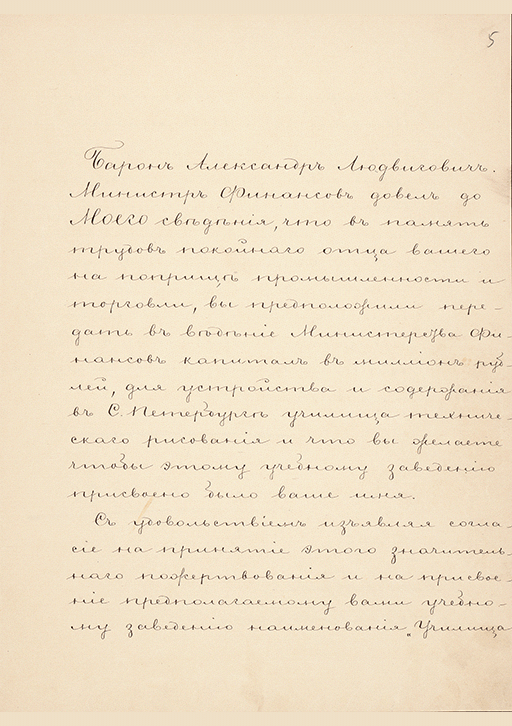 5
Баронъ Александръ Людвиговичъ.
Министръ Финансовъ довелъ до
Моего свѣдѣнія, что въ память
трудовъ покойнаго отца вашего
на поприщѣ промышленности и
торговли, вы предположили пере-
дать въ вѣдѣніе Министерства Фи-
нансовъ капиталъ въ милліонъ руб-
лей, для устройства и содержанія
въ С. Петербургѣ училища техниче-
скаго рисованія и что вы желаете
чтобы этому учебному заведенію
присвоено было ваше имя.
Съ удовольствіемъ изъявляя согла-
сіе на принятіе этого значитель-
наго пожертвованія и на присвое-
ніе предполагаемому вами учебно-
му заведенію наименованія „Училища